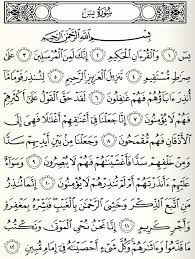 سُورَةُ يسٓ
بِسْمِ اللَّهِ الرَّحْمَٰنِ الرَّحِيمِ
يسٓ ١ وَالْقُرْآنِ الْحَكِيمِ ٢ إِنَّكَ لَمِنَ الْمُرْسَلِينَ ٣ عَلَىٰ
صِرَاطٍ مُّسْتَقِيمٍ ٤ تَنزِيلَ الْعَزِيزِ الرَّحِيمِ ٥ لِتُنذِرَ قَوْمًا مَّا
أُنذِرَ آبَاؤُهُمْ فَهُمْ غَافِلُونَ ٦ لَقَدْ حَقَّ الْقَوْلُ عَلَىٰ أَكْثَرِهِمْ
فَهُمْ لَا يُؤْمِنُونَ ٧ إِنَّا جَعَلْنَا فِي أَعْنَاقِهِمْ أَغْلَالًا فَهِيَ إِلَى
الْأَذْقَانِ فَهُم مُّقْمَحُونَ ٨ وَجَعَلْنَا مِن بَيْنِ أَيْدِيهِمْ سَدًّا
وَمِنْ خَلْفِهِمْ سَدًّا فَأَغْشَيْنَاهُمْ فَهُمْ لَا يُبْصِرُونَ ٩ وَسَوَاءٌ
عَلَيْهِمْ أَأَنذَرْتَهُمْ أَمْ لَمْ تُنذِرْهُمْ لَا يُؤْمِنُونَ ١٠ إِنَّمَا تُنذِرُ
مَنِ اتَّبَعَ الذِّكْرَ وَخَشِيَ الرَّحْمَٰنَ بِالْغَيْبِ فَبَشِّرْهُ بِمَغْفِرَةٍ
وَأَجْرٍ كَرِيمٍ ١١ إِنَّا نَحْنُ نُحْيِي الْمَوْتَىٰ وَنَكْتُبُ مَا قَدَّمُوا
وَآثَارَهُمْ وَكُلَّ شَيْءٍ أَحْصَيْنَاهُ فِي إِمَامٍ مُّبِينٍ ١٢